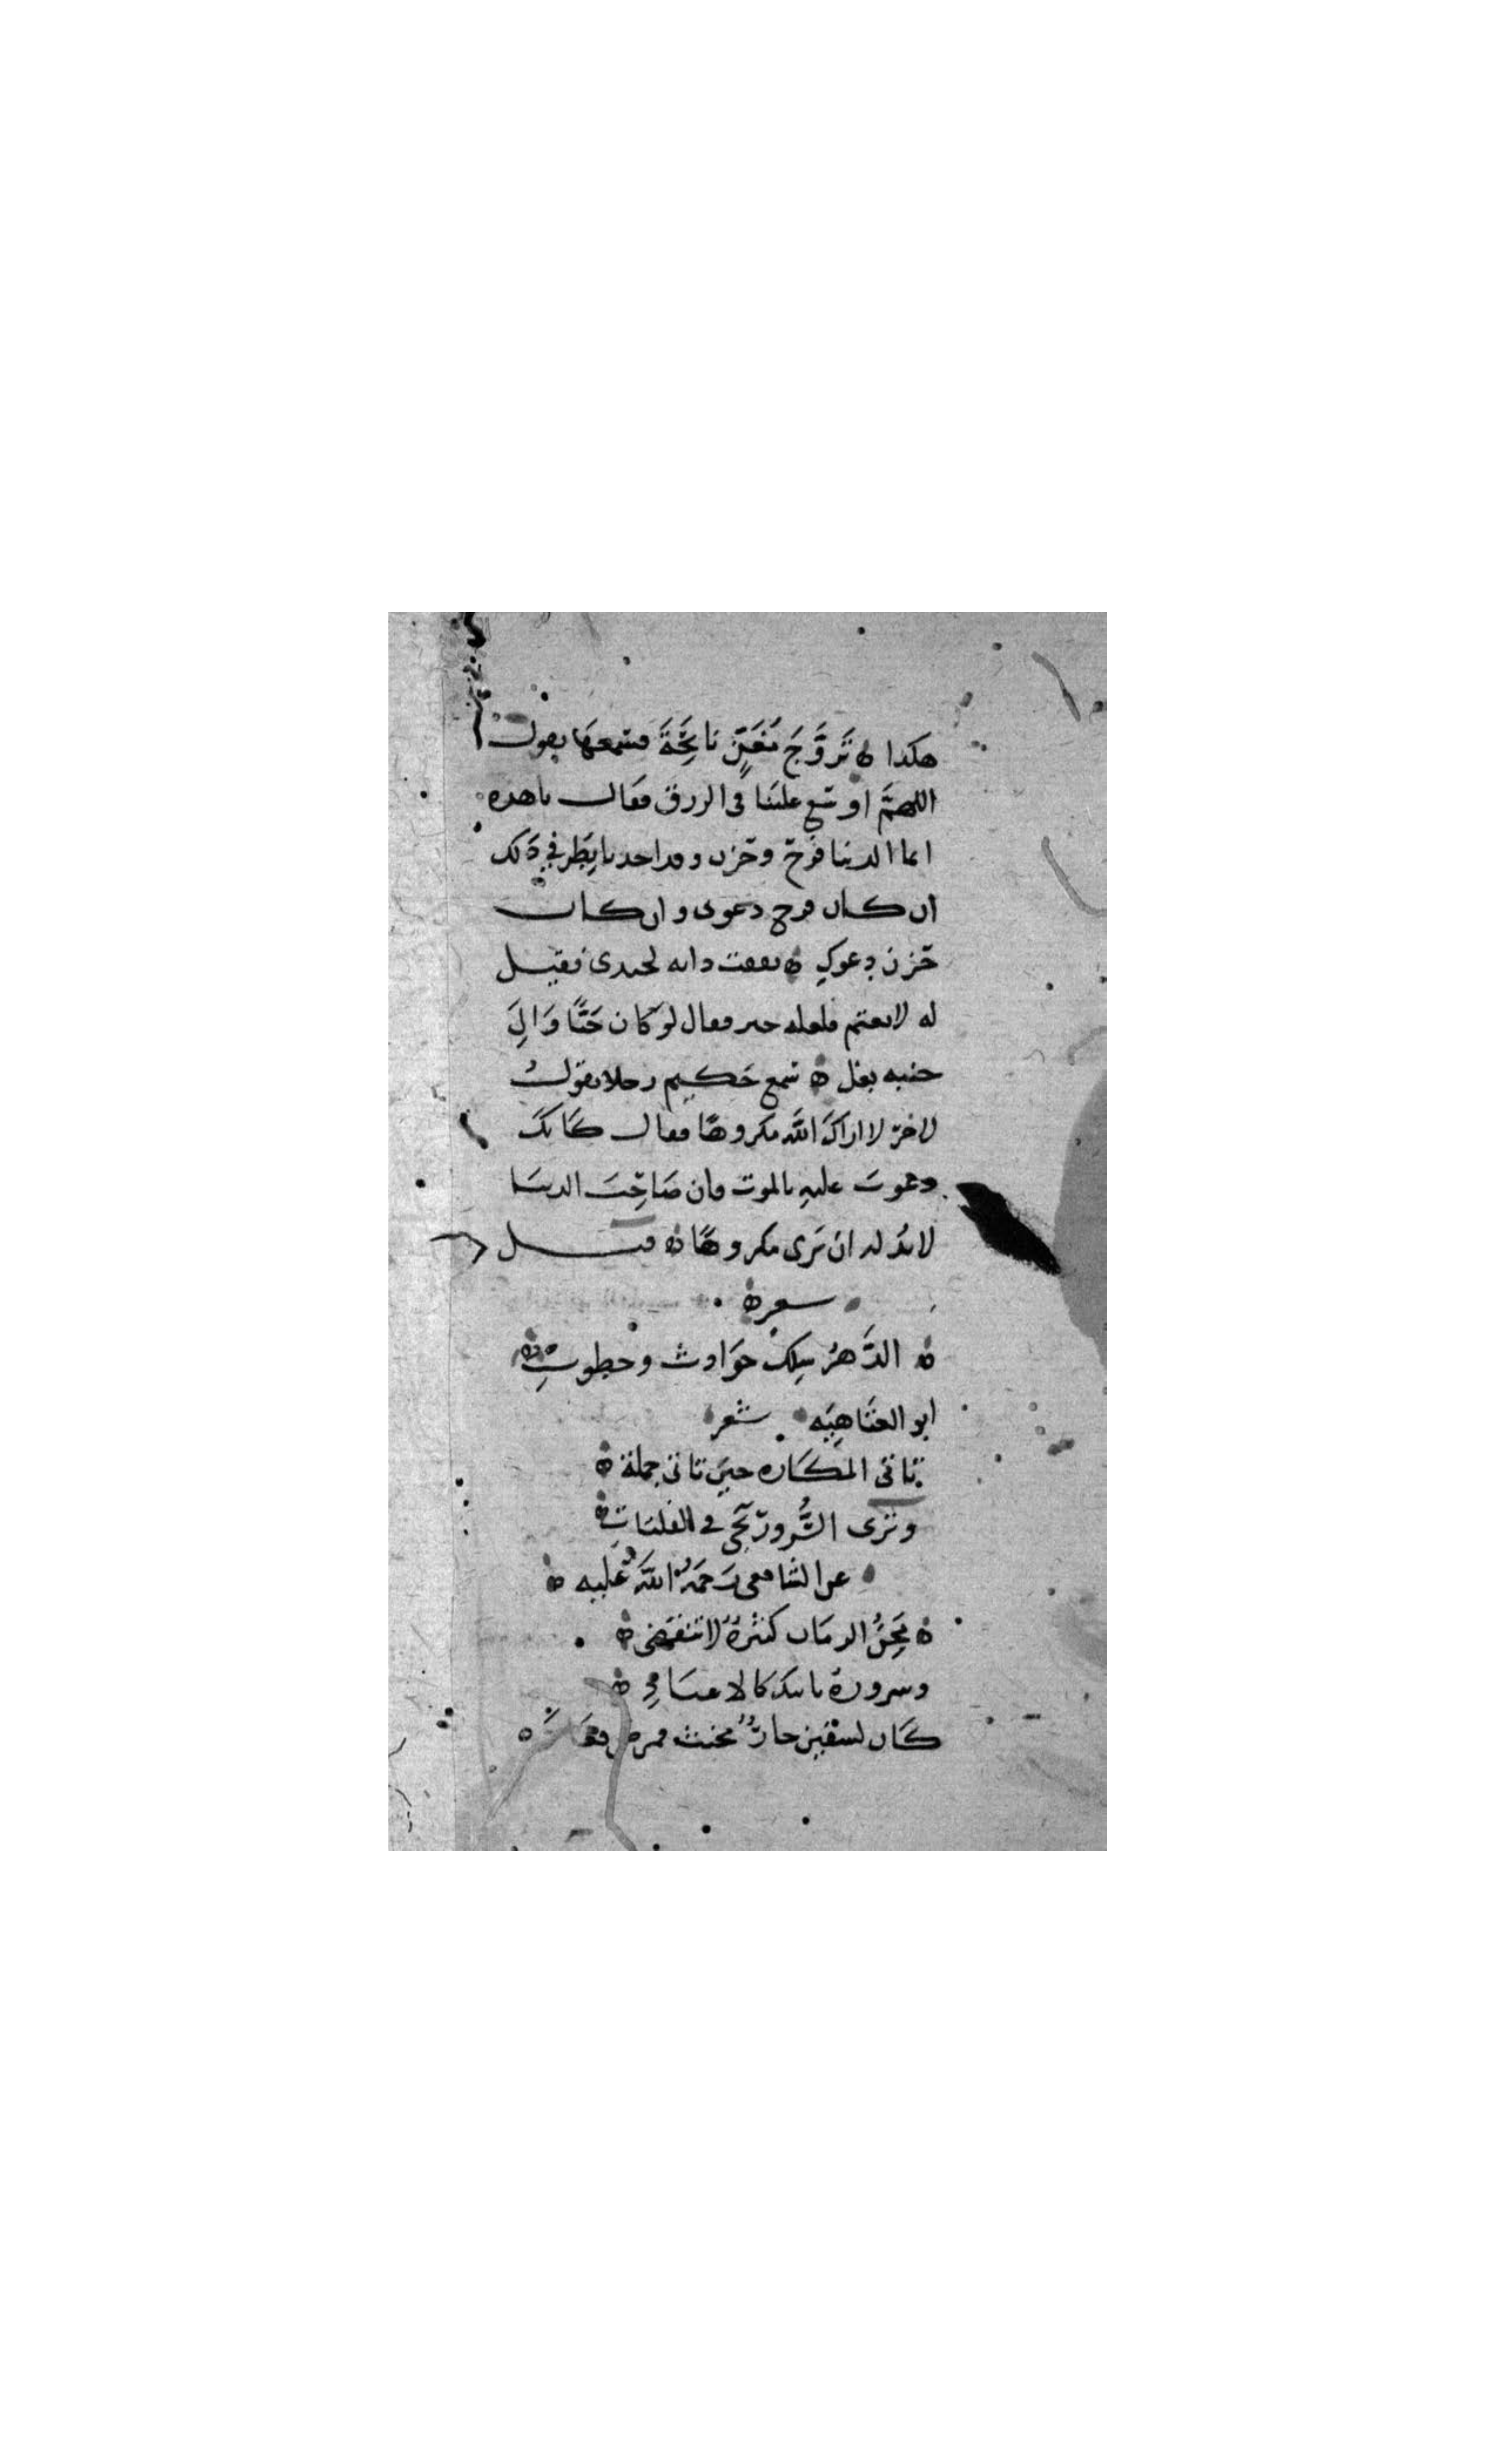 هكدا ه تَزوَّجَ مُغَنٍّ نائِحَةً فسمعَها يقول
اللهمَّ اوسع علينا في الرزق فقال ياهذه
انما الدنيا فرح وحزن وقد اخذنا بطرفي ذلك
ان كان فرح دعوني وان كان
حزن دعوكِ ه نفقت دابه لجندي فقيل
له لا تغتم فلعله خير فقال لو كان حيًّا وَالى
جنبه بغل ه سمع حكيم رجلا يقولُ
لاخر لا اراكَ اللهُ مكروهًا فقال كانك
دعوتَ عليهِ بالموت فان صَاحِبَ الدنيَا
لا بُدَّ له ان يَرى مكروهًا ه قيل
شعر ه
ه الدَّهرُ سِلك حوَادث وخطوبِ ه
ابو العتَاهِيَه شعر
تاتى المكَاره حينَ تاتى جملة ه
وترى السُّرورَ يجى في الفلتاتِ ه
عن الشافعي رَحمَةُ اللهُ عَليه ه
ه مِحَنُ الزمَان كثيرةٌ لا تنقضى ه
وسرورهُ ياتيك كالاعيَادِ ه
كَان لسفين جارٌ مخنث فمرض